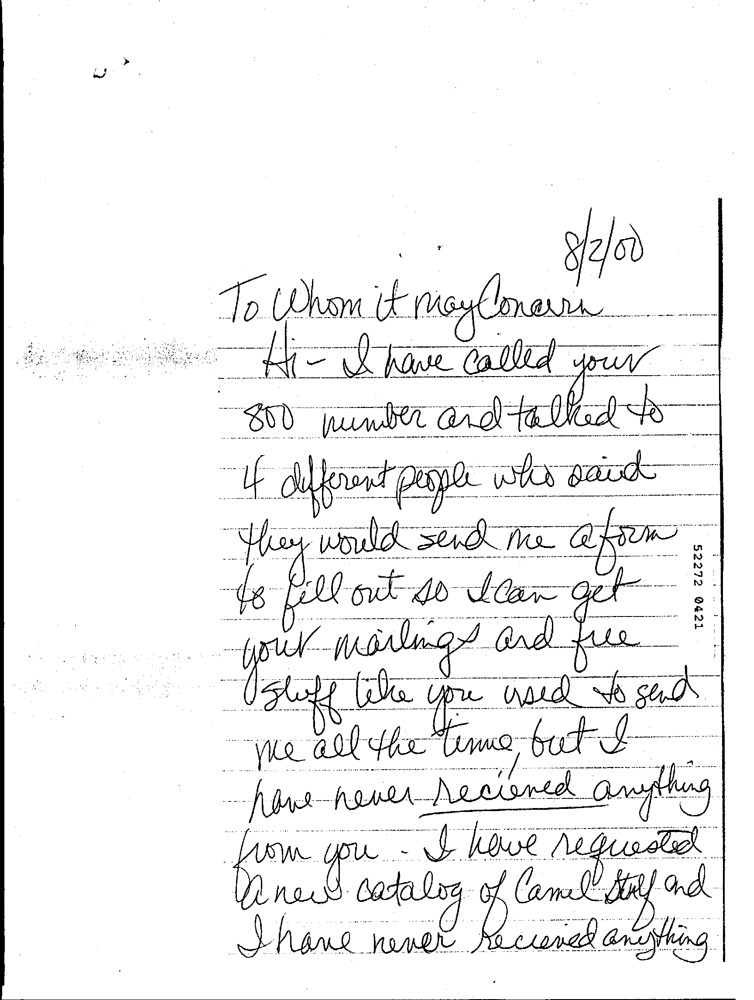 8/2/00
To Whom it may Concern
Hi - I have called your
800 number and talked to
4 different people who said
they would send me a form
to fill out so I can get
your mailings and free
stuff like you used to send
me all the time, but I
have never recieved anything
from you - I have requested
a new catalog of Camel stuff and
I have never recieved anything
52272 0421